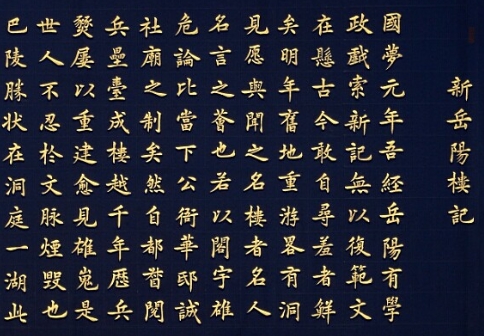 新岳陽樓記
國夢元年吾經岳陽有學
政戲索新記無以復範文
在懸古今敢自尋羞者鮮
矣明年舊地重游畧有洞
見愿與聞之名樓者名人
名言之薈也若以閣宇雄
危論比當下公衙華邸誠
社廟之制矣然自都督閱
兵壘臺成樓越千年歷兵
燹屢以重建愈見雄嵬是
世人不忍於文脉煙毀也
巴陵勝狀在洞庭一湖此